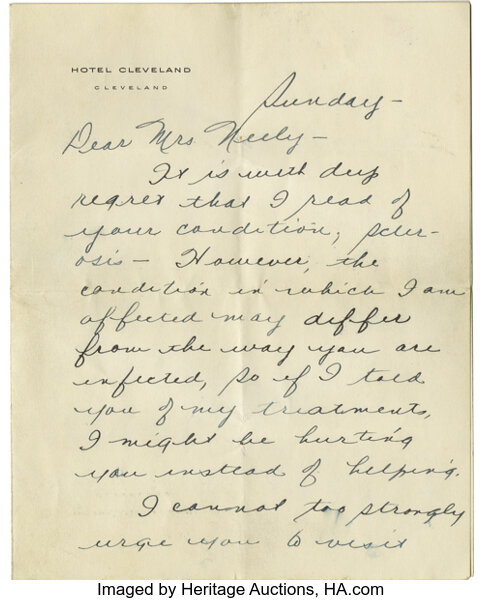 HOTEL CLEVELAND
CLEVELAND
Sunday-
Dear Mrs. Neely-
It is with deep
regret that I read of
your condition, scler-
osis- However, the
condition in which I am
affected may differ
from the way you are
infected, so if I told
you of my treatments,
I might be hurting
you instead of helping.
I cannot too strongly
urge you to visit
Imaged by Heritage Auctions, HA.com